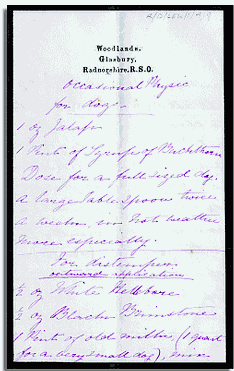 Woodlands,
Glasbury,
Radnorshire, R.S.O.
Occasional Physic
for dogs.
1 oz Jalap
1 Pint of Syrup of Buckthorn
Dose for a full sized dog.
a large Table Spoon twice
a week, in hot weather
more especially.
For distemper
outward application
½ oz White Hellebore
½ oz Black Brimstone
1 Pint of old milk, (1 quart
for a very small dog), mix